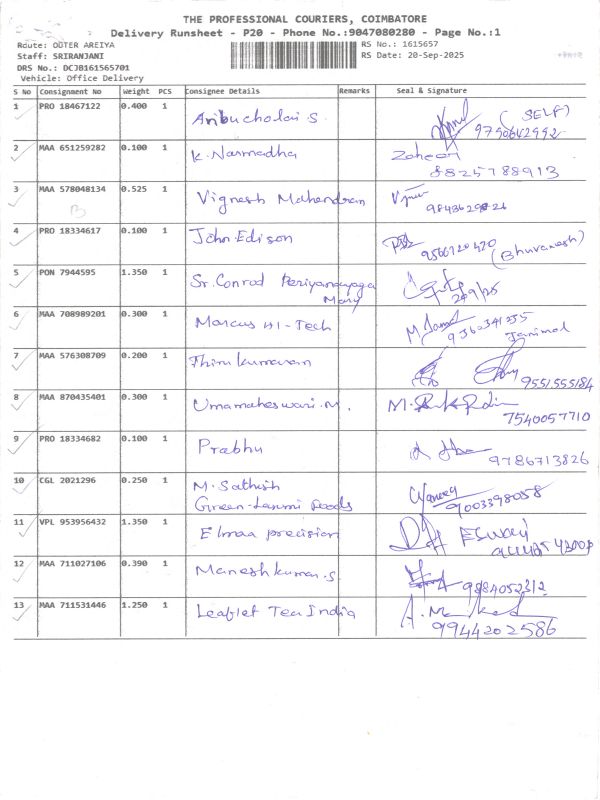 THE PROFESSIONAL COURIERS, COIMBATORE
Delivery Runsheet - P20 - Phone No.:9047080280 - Page No.:1
Route: ODTER AREIYA RS No.: 1615657
Staff: SRIRANJANI RS Date: 20-Sep-2025
DRS No.: DCJB161565701
Vehicle: Office Delivery
S No Consignment No Weight PCS Consignee Details Remarks Seal & Signature
1 PRO 18467122 0.400 1 Aribucholai S (SELF)
9790642992
2 MAA 651259282 0.100 1 K. Narmadha Zaheer
8825788913
3 MAA 578048134 0.525 1 Vignesh Mahendran
B
4 PRO 18334617 0.100 1 John Edison 9566720420 (Bhuvanesh)
5 PON 7944595 1.350 1 Sr. Conrad Periyanayaga
Mary
6 MAA 708989201 0.300 1 Marcus HI-Tech 9360341355
Janimol
7 MAA 576308709 0.200 1 Thirukumaran
9551555184
8 MAA 870435401 0.300 1 Umamaheswari. M.
7540057710
9 PRO 18334682 0.100 1 Prabhu
9786713826
10 CGL 2021296 0.250 1 M. Sathish
Green Laxmi foods 9003398058
11 VPL 953956432 1.350 1 Elmaa precision Eswari
12 MAA 711027106 0.390 1 Maneshkumar. S 9884052312
13 MAA 711531446 1.250 1 Leaflet Tea India
9944202586